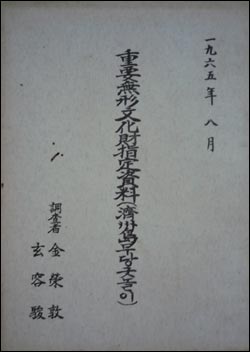 一九六五年 八月
重要無形文化財指定資料(濟州島무당굿놀이)
調査者 金榮敦
玄容駿